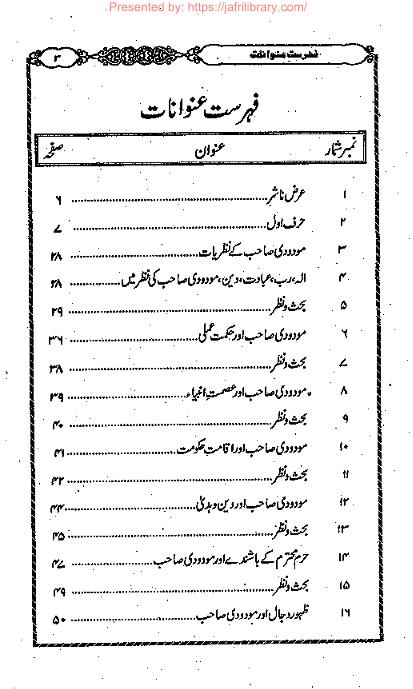 Presented by: https://jafrilibrary.com/
فہرست عنوانات ۳
فہرست عنوانات
نمبر شمار عنوان صفحہ
۱ عرض ناشر ۶
۲ حرف اول ۷
۳ مودودی صاحب کے نظریات ۲۸
۴ الہ، رب، عبادت، دین، مودودی صاحب کی نظر میں ۲۸
۵ بحث و نظر ۲۹
۶ مودودی صاحب اور حکمت عملی ۳۶
۷ بحث و نظر ۳۸
۸ مودودی صاحب اور عصمتِ انبیاء ۳۹
۹ بحث و نظر ۴۰
۱۰ مودودی صاحب اور اقامتِ حکومت ۴۱
۱۱ بحث و نظر ۴۲
۱۲ مودودی صاحب اور دین و ہدیٰ ۴۴
۱۳ بحث و نظر ۴۵
۱۴ حرم محترم کے باشندے اور مودودی صاحب ۴۷
۱۵ بحث و نظر ۴۹
۱۶ ظہور دجال اور مودودی صاحب ۵۰